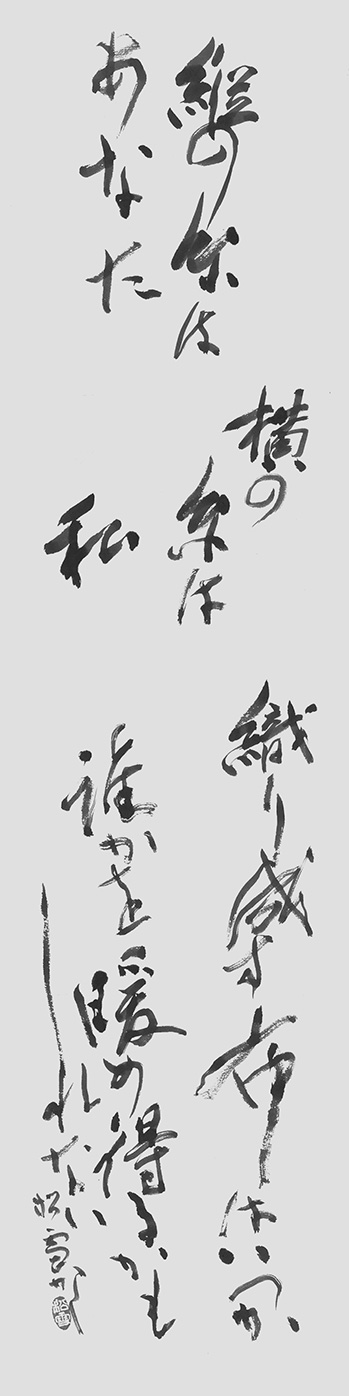 縦の糸は
あなた
横の
糸は
私
織り成す布はいつか
誰かを
暖め得るかも
しれない
松雪かく